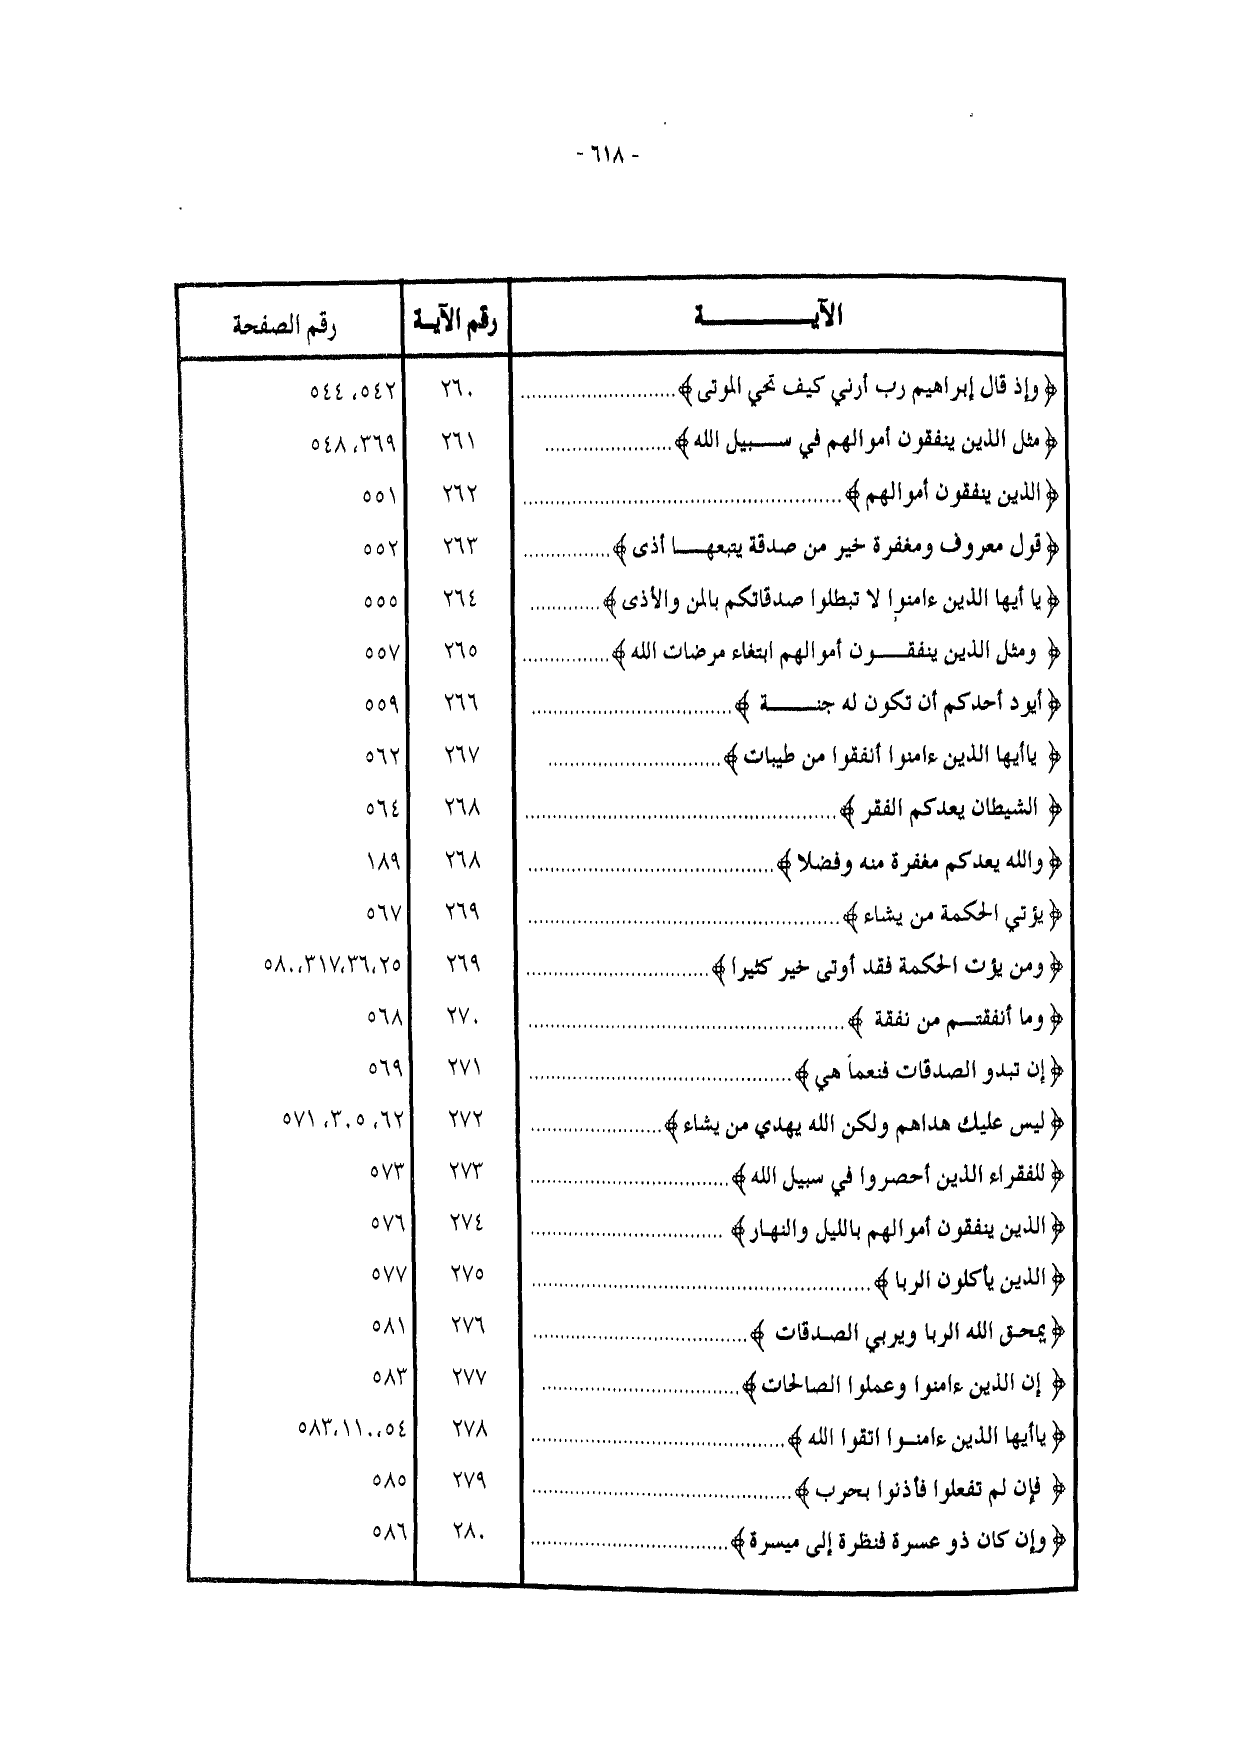 - ٦١٨ -
الآيــــــــــة رقم الآيـة رقم الصفحة
﴿ وإذ قال إبراهيم رب أرني كيف تحي الموتى ﴾............................ ٢٦٠ ٥٤٢، ٥٤٤
﴿ مثل الذين ينفقون أموالهم في ســـبيل الله ﴾....................... ٢٦١ ٣٦٩، ٥٤٨
﴿ الذين ينفقون أموالهم ﴾......................................................... ٢٦٢ ٥٥١
﴿ قول معروف ومغفرة خير من صدقة يتبعهـــا أذى ﴾................ ٢٦٣ ٥٥٢
﴿ يا أيها الذين ءامنوا لا تبطلوا صدقاتكم بالمن والأذى ﴾............. ٢٦٤ ٥٥٥
﴿ ومثل الذين ينفقـــون أموالهم ابتغاء مرضات الله ﴾................ ٢٦٥ ٥٥٧
﴿ أيود أحدكم أن تكون له جنـــــة ﴾.................................... ٢٦٦ ٥٥٩
﴿ ياأيها الذين ءامنوا أنفقوا من طيبات ﴾............................... ٢٦٧ ٥٦٢
﴿ الشيطان يعدكم الفقر ﴾........................................................ ٢٦٨ ٥٦٤
﴿ والله يعدكم مغفرة منه وفضلا ﴾............................................ ٢٦٨ ١٨٩
﴿ يؤتي الحكمة من يشاء ﴾........................................................ ٢٦٩ ٥٦٧
﴿ ومن يؤت الحكمة فقد أوتى خير كثيرا ﴾................................. ٢٦٩ ٢٥، ٣٦، ٣١٧، ٥٨٠
﴿ وما أنفقتـم من نفقة ﴾......................................................... ٢٧٠ ٥٦٨
﴿ إن تبدو الصدقات فنعماَ هي ﴾............................................... ٢٧١ ٥٦٩
﴿ ليس عليك هداهم ولكن الله يهدي من يشاء ﴾........................ ٢٧٢ ٦٢، ٣٠٥، ٥٧١
﴿ للفقراء الذين أحصروا في سبيل الله ﴾.................................... ٢٧٣ ٥٧٣
﴿ الذين ينفقون أموالهم بالليل والنهار ﴾ ................................... ٢٧٤ ٥٧٦
﴿ الذين يأكلون الربا ﴾............................................................. ٢٧٥ ٥٧٧
﴿ يمحق الله الربا ويربي الصدقات ﴾....................................... ٢٧٦ ٥٨١
﴿ إن الذين ءامنوا وعملوا الصالحات ﴾.................................... ٢٧٧ ٥٨٣
﴿ ياأيها الذين ءامنـوا اتقوا الله ﴾.............................................. ٢٧٨ ٥٤، ١١٠، ٥٨٣
﴿ فإن لم تفعلوا فأذنوا بحرب ﴾............................................... ٢٧٩ ٥٨٥
﴿ وإن كان ذو عسرة فنظرة إلى ميسرة ﴾.................................... ٢٨٠ ٥٨٦